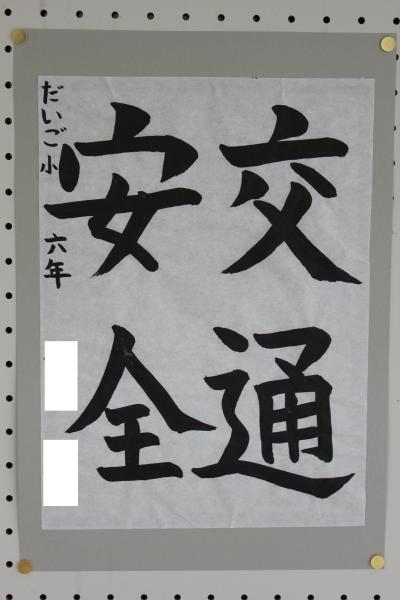 交通
安全
だいご小 六年